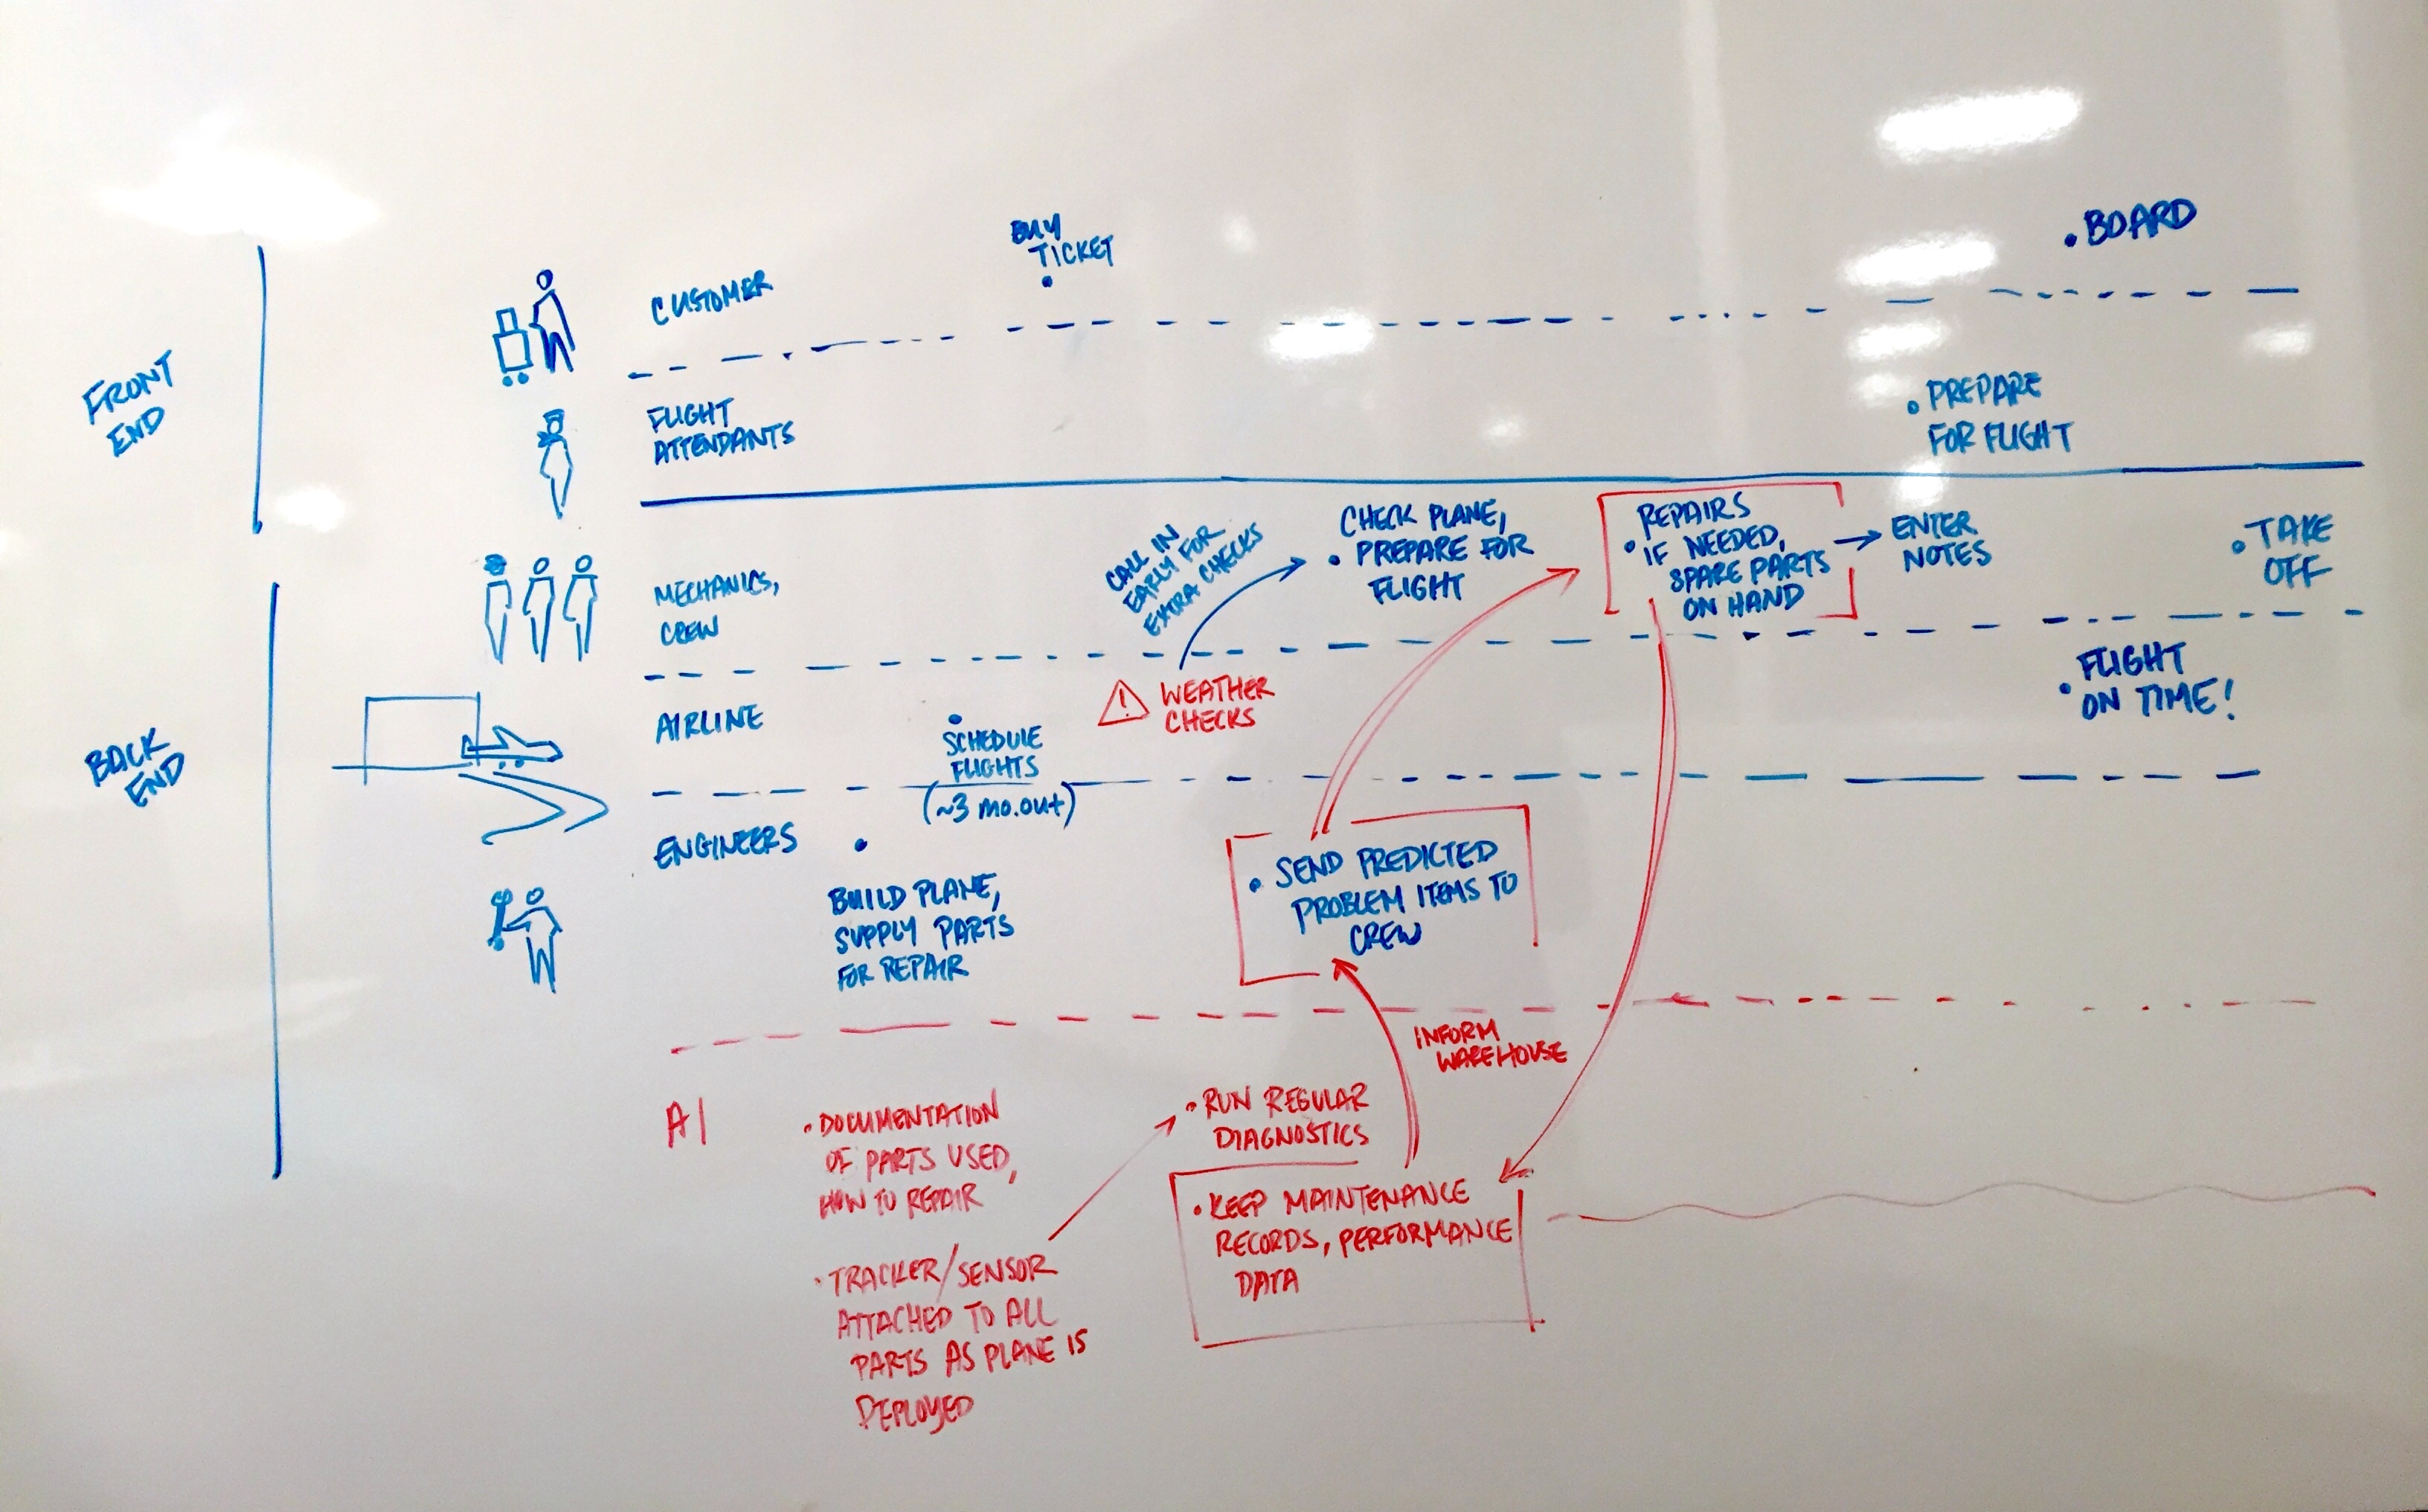 FRONT
END
BACK
END
BUY
TICKET
BOARD
CUSTOMER
FLIGHT
ATTENDANTS
PREPARE
FOR FLIGHT
MECHANICS,
CREW
CALL IN
EARLY FOR
EXTRA CHECKS
CHECK PLANE,
PREPARE FOR
FLIGHT
REPAIRS
IF NEEDED,
SPARE PARTS
ON HAND
ENTER
NOTES
TAKE
OFF
AIRLINE
SCHEDULE
FLIGHTS
(~3 mo.out)
WEATHER
CHECKS
FLIGHT
ON TIME!
ENGINEERS
BUILD PLANE,
SUPPLY PARTS
FOR REPAIR
SEND PREDICTED
PROBLEM ITEMS TO
CREW
INFORM
WAREHOUSE
AI
DOCUMENTATION
OF PARTS USED,
HOW TO REPAIR
TRACKER/SENSOR
ATTACHED TO ALL
PARTS AS PLANE IS
DEPLOYED
RUN REGULAR
DIAGNOSTICS
KEEP MAINTENANCE
RECORDS, PERFORMANCE
DATA